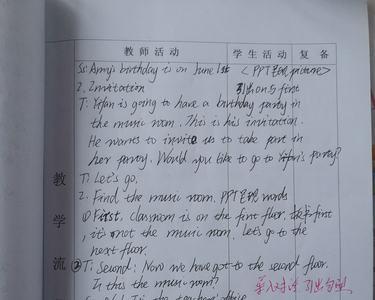 教师活动 学生活动 复备
Ss: Amy's birthday is on June 1st <PPT呈现 picture>
2. Invitation 引出on与first
T: Yifan is going to have a birthday party in
the music room. This is his invitation.
He wants to invite us to take part in
her party. Would you like to go to Yifan's party?
T: Let's go.
2. Find the music room. PPT呈现 words
① First, classroom is on the first floor. first
, it's not the music room. Let's go to the
next floor.
② T: Second: Now we have got to the second floor.
Is this the music room? 引出句型
教
学
流